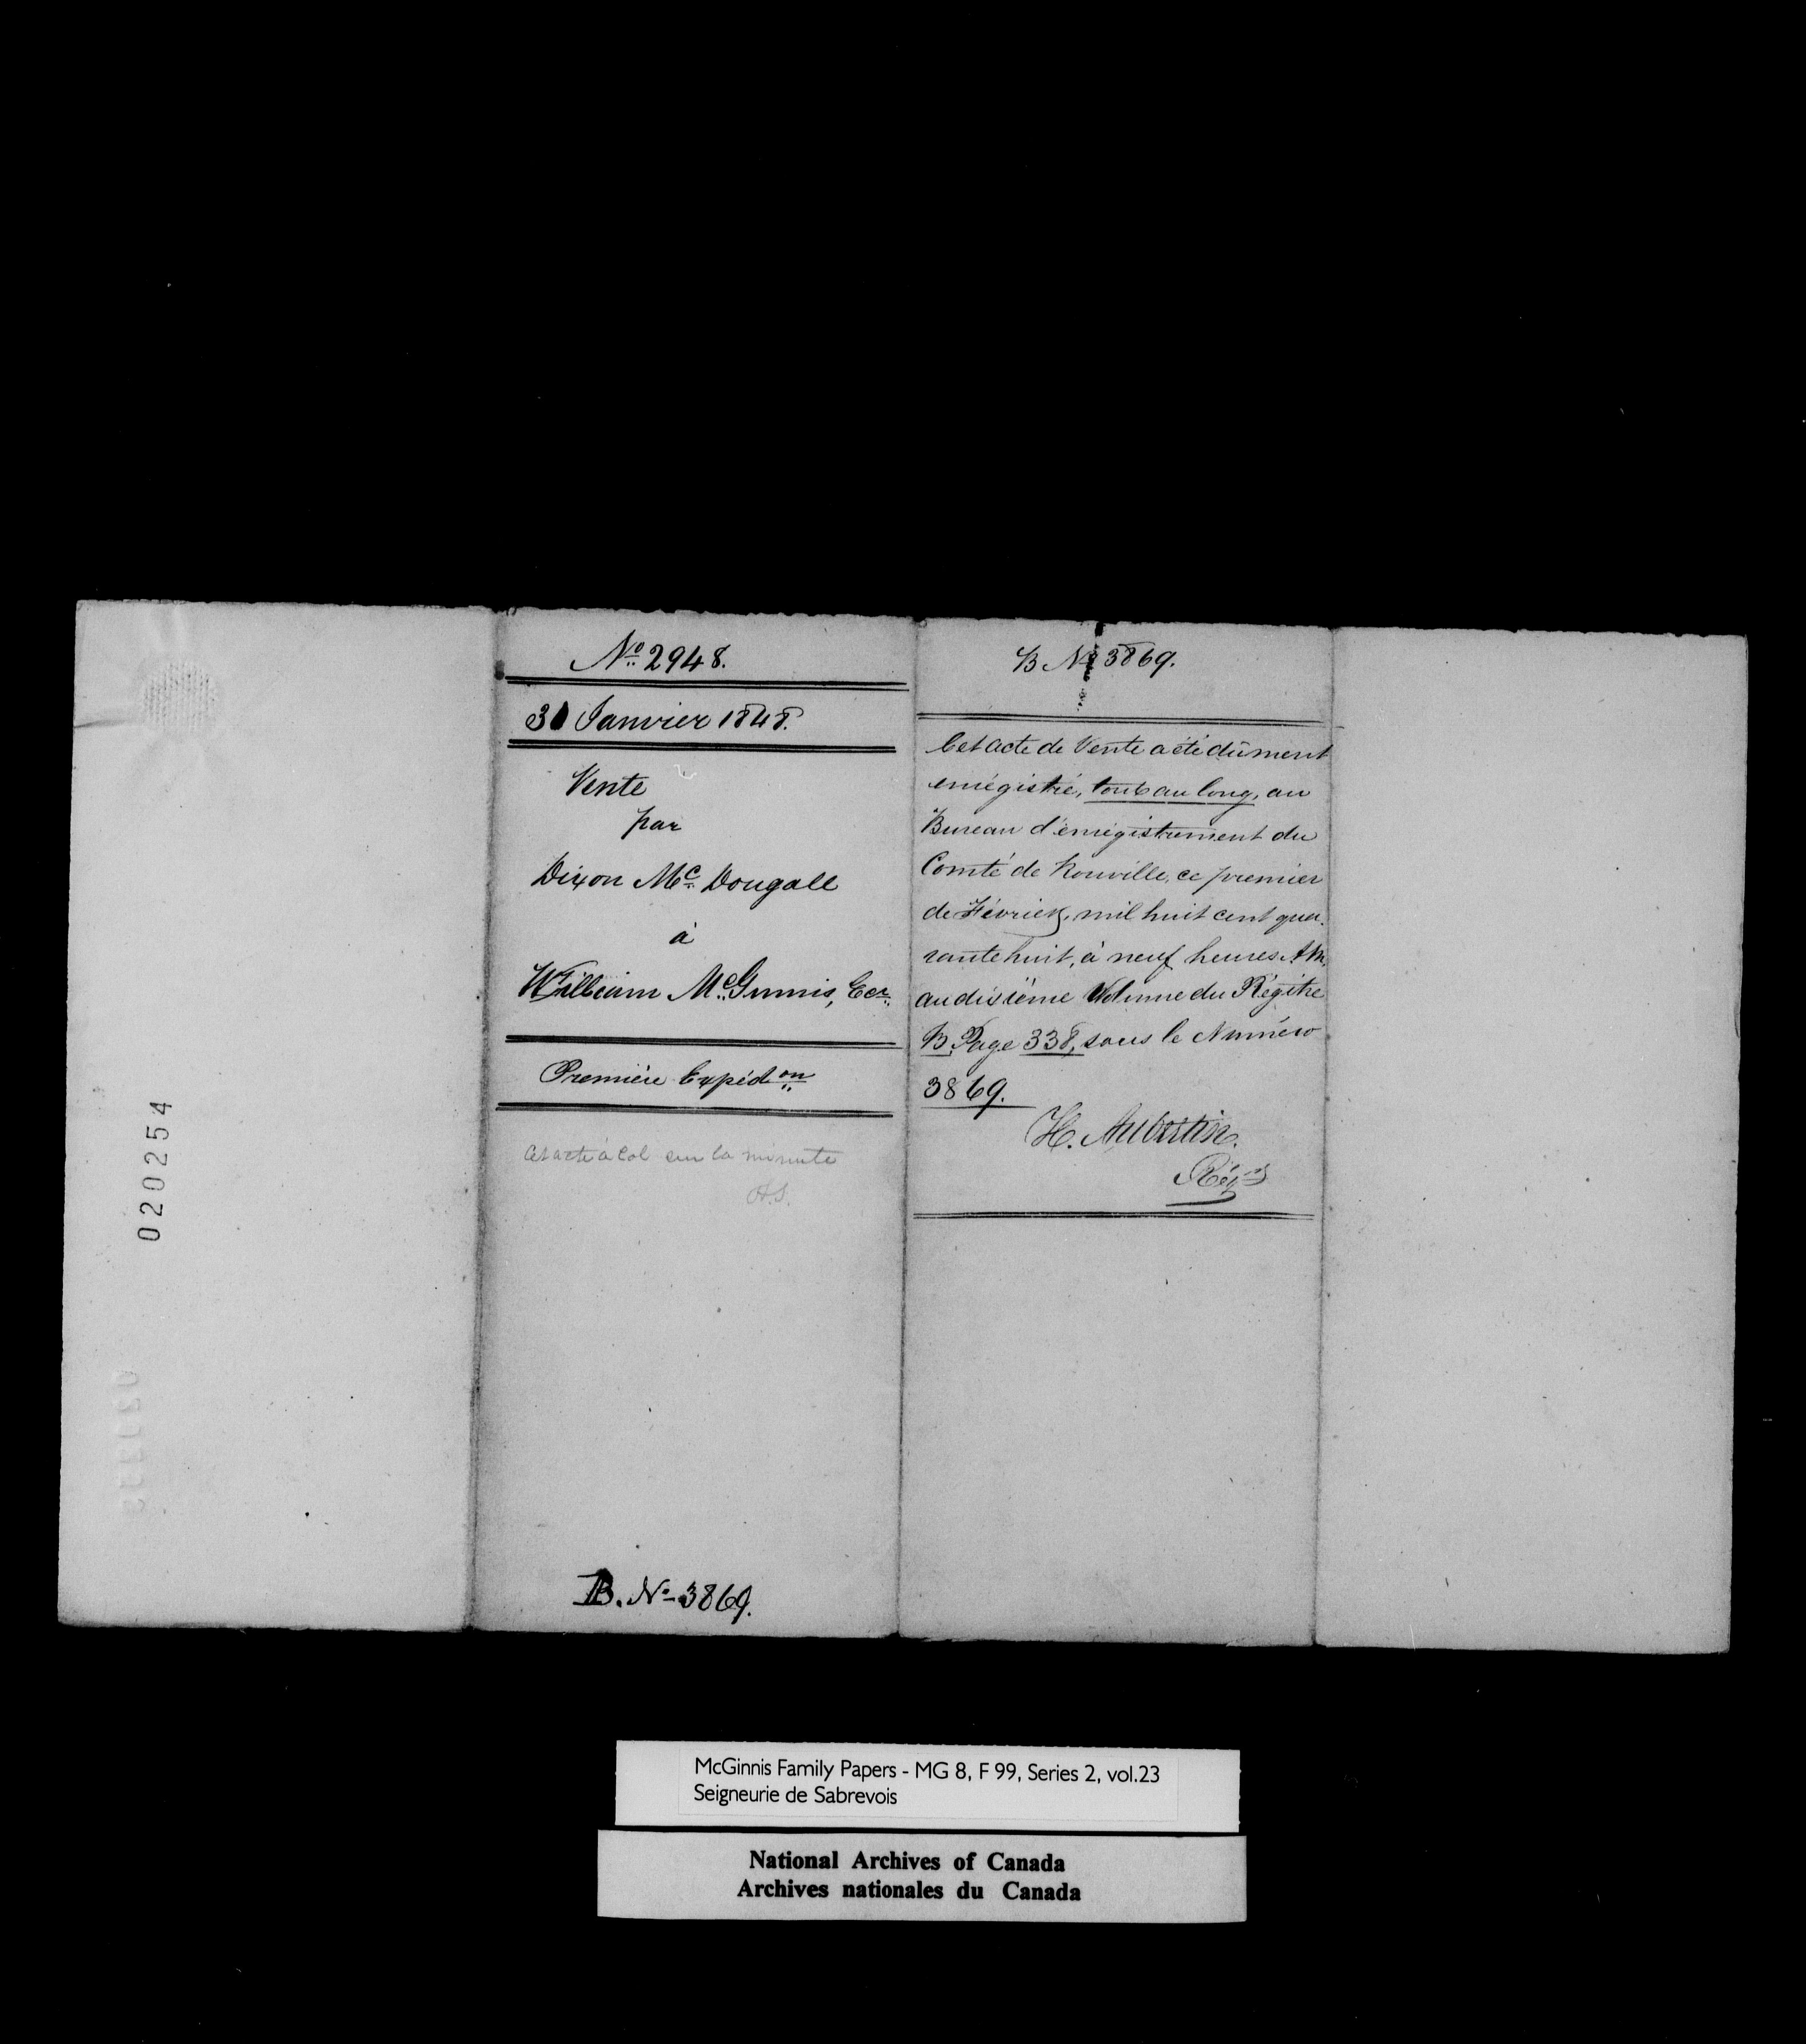 020254
No 2948.
31 Janvier 1848.
Vente
par
Dixon Mc Dougall
à
William McGinnis, Ecr.
Première Expédon
Cet acte a Col sur la minute
A.S.
B. No 3869.
B No 3869.
Cet acte de Vente a été dûment
enrégistré, tout au long, au
Bureau d'enrégistrement du
Comté de Rouville, ce premier
de Février, mil huit cent qua-
rante huit, à neuf heures AM,
au dixième Volume du Régitre
B, Page 338, sous le Numéro
3869.
H. Aubertin.
Régr
McGinnis Family Papers - MG 8, F 99, Series 2, vol.23
Seigneurie de Sabrevois
National Archives of Canada
Archives nationales du Canada